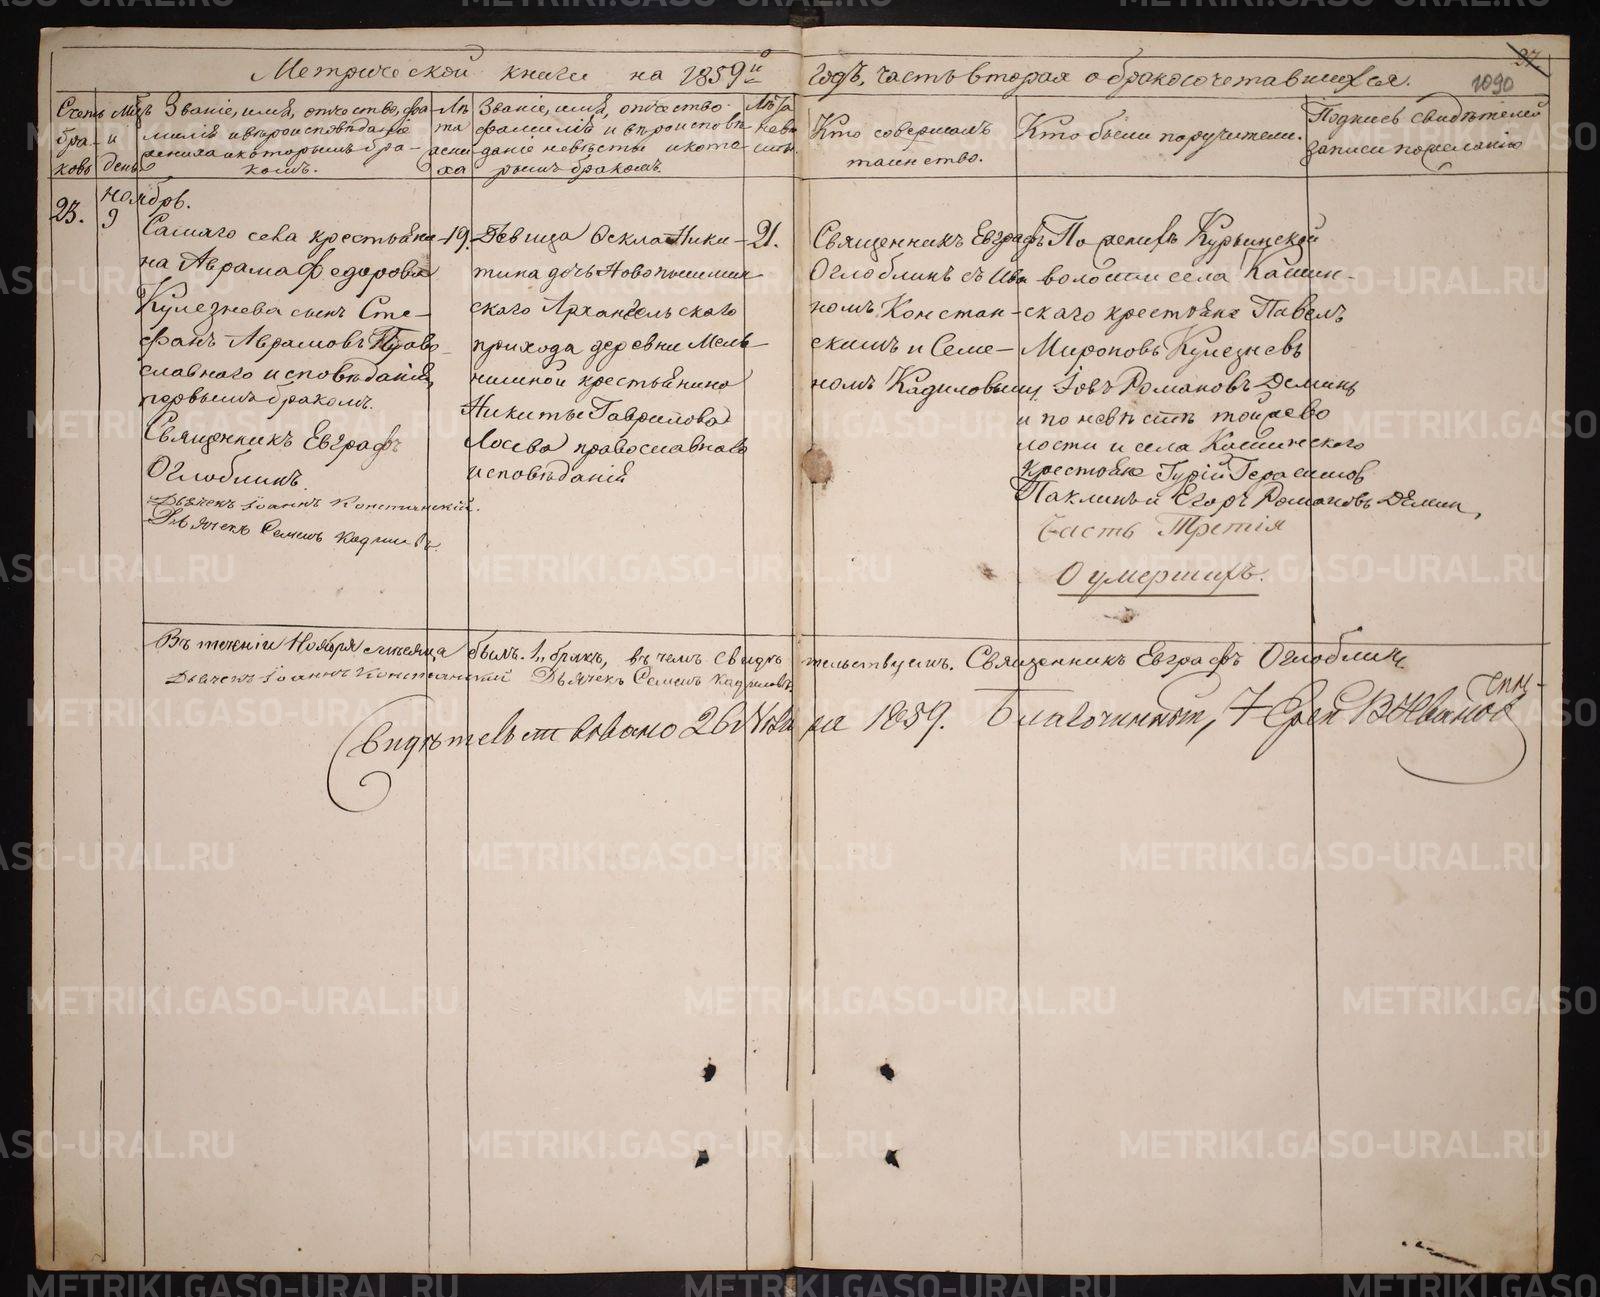 Метрической книги на 1859й годъ, часть вторая о бракосочетавшихся.
37
1090
Счетъ браковъ
Мцъ и день
Званіе, имя, отчество, фа-
милія и вѣроисповѣданіе
жениха и которымъ бра-
комъ.
Лѣта жениха
Званіе, имя, отчество
фамилія и вѣроисповѣ-
даніе невѣсты и кото-
рымъ бракомъ.
Лѣта невѣсты.
Кто совершалъ
таинство.
Кто были поручители.
Подпись свидѣтелей
записи по желанію
23.
Ноябрь.
9
Самаго села крестьяни-
на Аврама Федорова
Кулезнева сынъ Сте-
фанъ Аврамовъ Право-
славнаго исповѣданія,
первымъ бракомъ.
Священникъ Евграфъ
Оглоблинъ.
Дьячекъ Іоаннъ Констанскій.
Дьячекъ Семенъ Кадиловъ.
19.
Дѣвица Фекла Ники-
тина дочь Новопышмин-
скаго Архангельскаго
прихода деревни Мель-
ничной крестьянина
Никиты Гаврилова
Лосева православнаго
исповѣданія
21.
Священникъ Евграфъ
Оглоблинъ съ Ива-
номъ Констан-
скимъ и Семе-
номъ Кадиловымъ
По женихѣ Курьинской
волости села Кашин-
скаго крестьяне Павелъ
Мироновъ Кулезневъ
Іовъ Романовъ Деминъ
и по невѣстѣ той же во
лости и села Кашинскаго
крестьяне Гурій Герасимов
Паклинъ и Егоръ Романовъ Деминъ,
Часть Третія
О умершихъ.
Въ теченіи Ноября мѣсяца былъ 1. бракъ, въ чемъ свидѣтельствуемъ. Священникъ Евграфъ Оглоблинъ
Дьячекъ Іоаннъ Констанскій Дьячекъ Семенъ Кадиловъ.
Свидѣтельствовано 26 Ноября 1859. Благочинный, Іерей В Ивановъ